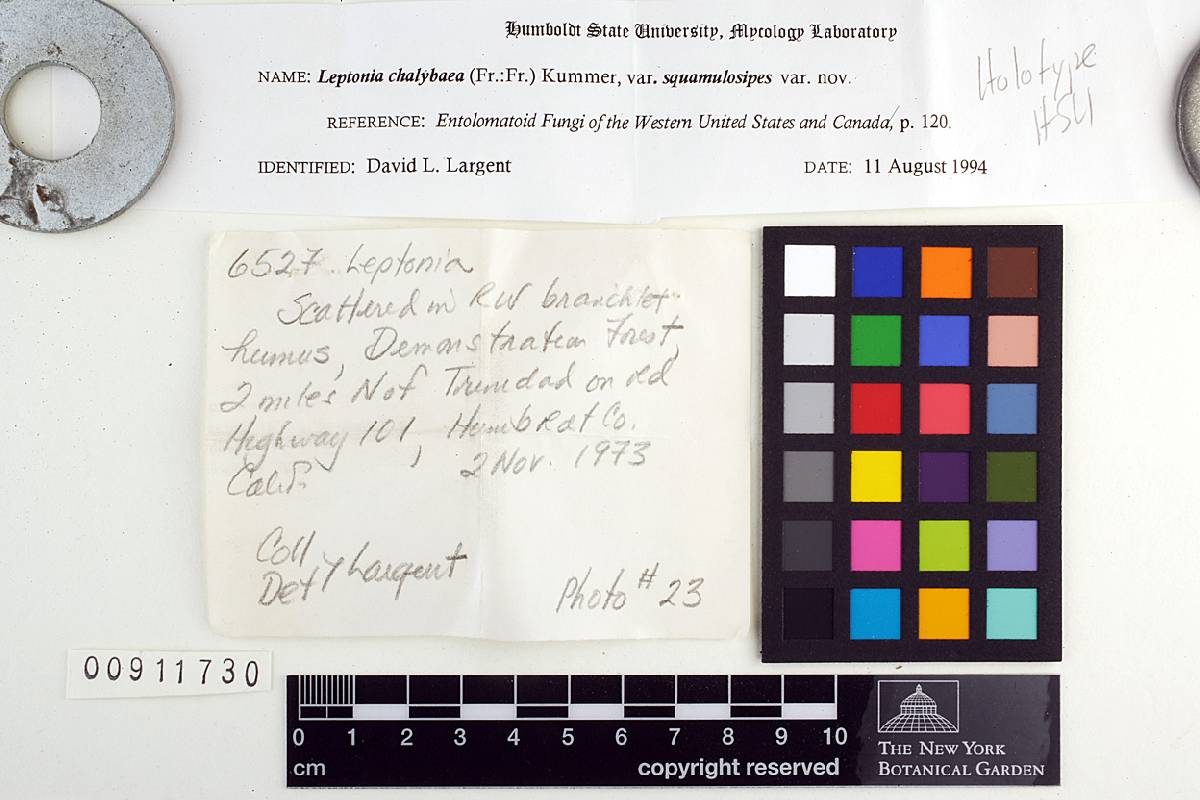 Humboldt State University, Mycology Laboratory
NAME: Leptonia chalybaea (Fr.:Fr.) Kummer, var. squamulosipes var. nov.
REFERENCE: Entolomatoid Fungi of the Western United States and Canada, p. 120.
IDENTIFIED: David L. Largent DATE: 11 August 1994
Holotype
HSU
6527 Leptonia
Scattered in RW branchlet
humus, Demonstration Forest,
2 miles N of Trinidad on old
Highway 101, Humboldt Co.
Calif. 2 Nov. 1973
Coll
Det } Largent
Photo # 23
00911730
0 1 2 3 4 5 6 7 8 9 10
cm copyright reserved
THE NEW YORK
BOTANICAL GARDEN